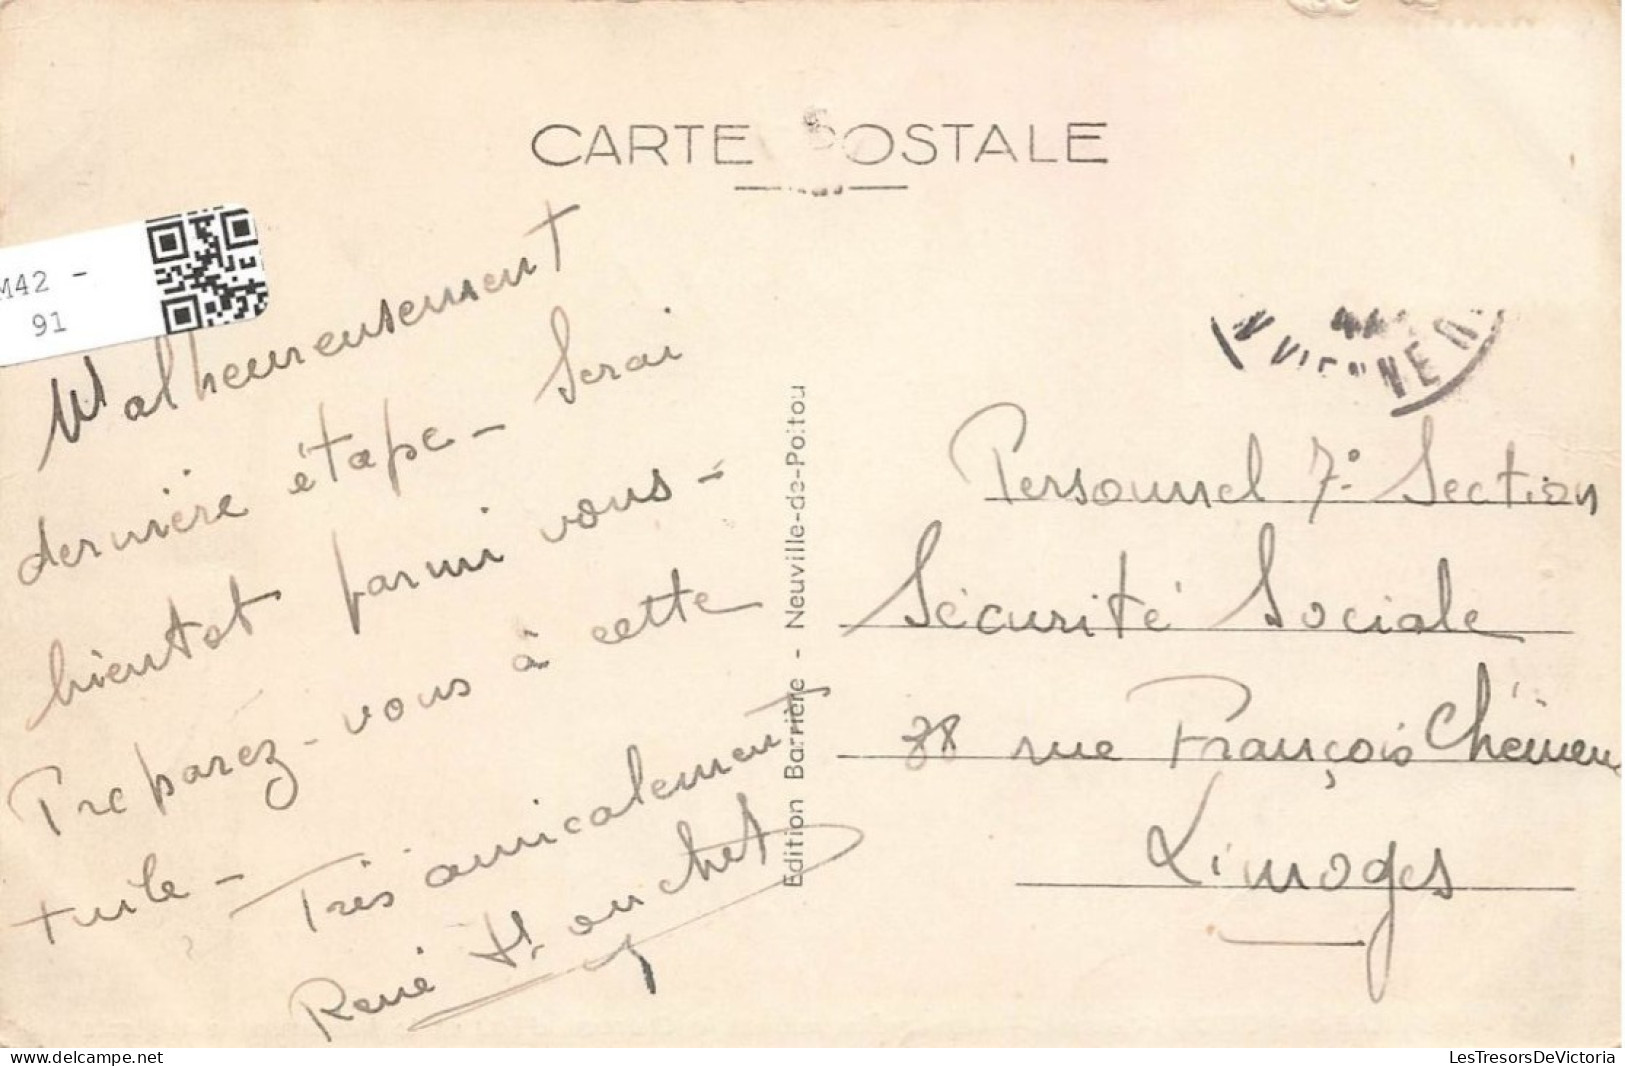 CARTE POSTALE
M42 -
91
Malheureusement
dernière étape - Serai
bientot parmi vous -
Preparez-vous à cette
tuile - Très amicalement
René
Edition Barrière - Neuville-de-Poitou
VIENNE
Personnel 7e Section
Sécurité Sociale
38 rue François Chénieux
Limoges
delcampe.net
LesTresorsDeVictoria